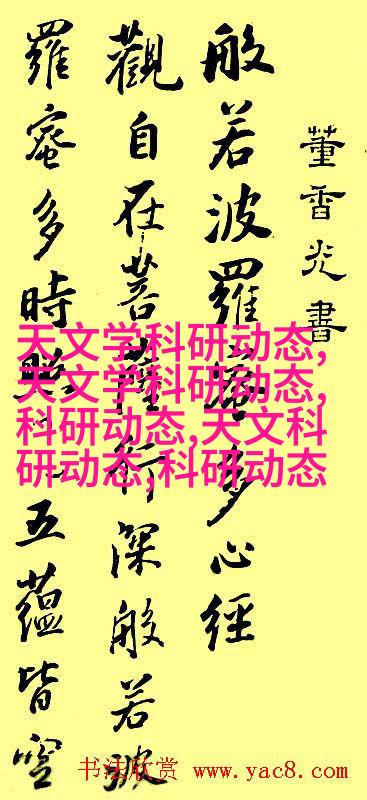 董香光書
般若波羅蜜多心經
觀自在菩薩行深般若波
羅蜜多時照見五蘊皆空
天文学科研动态,
天文学科研动态,
科研动态,天文科
研动态,科研动态
书法欣赏 www.yac8.com